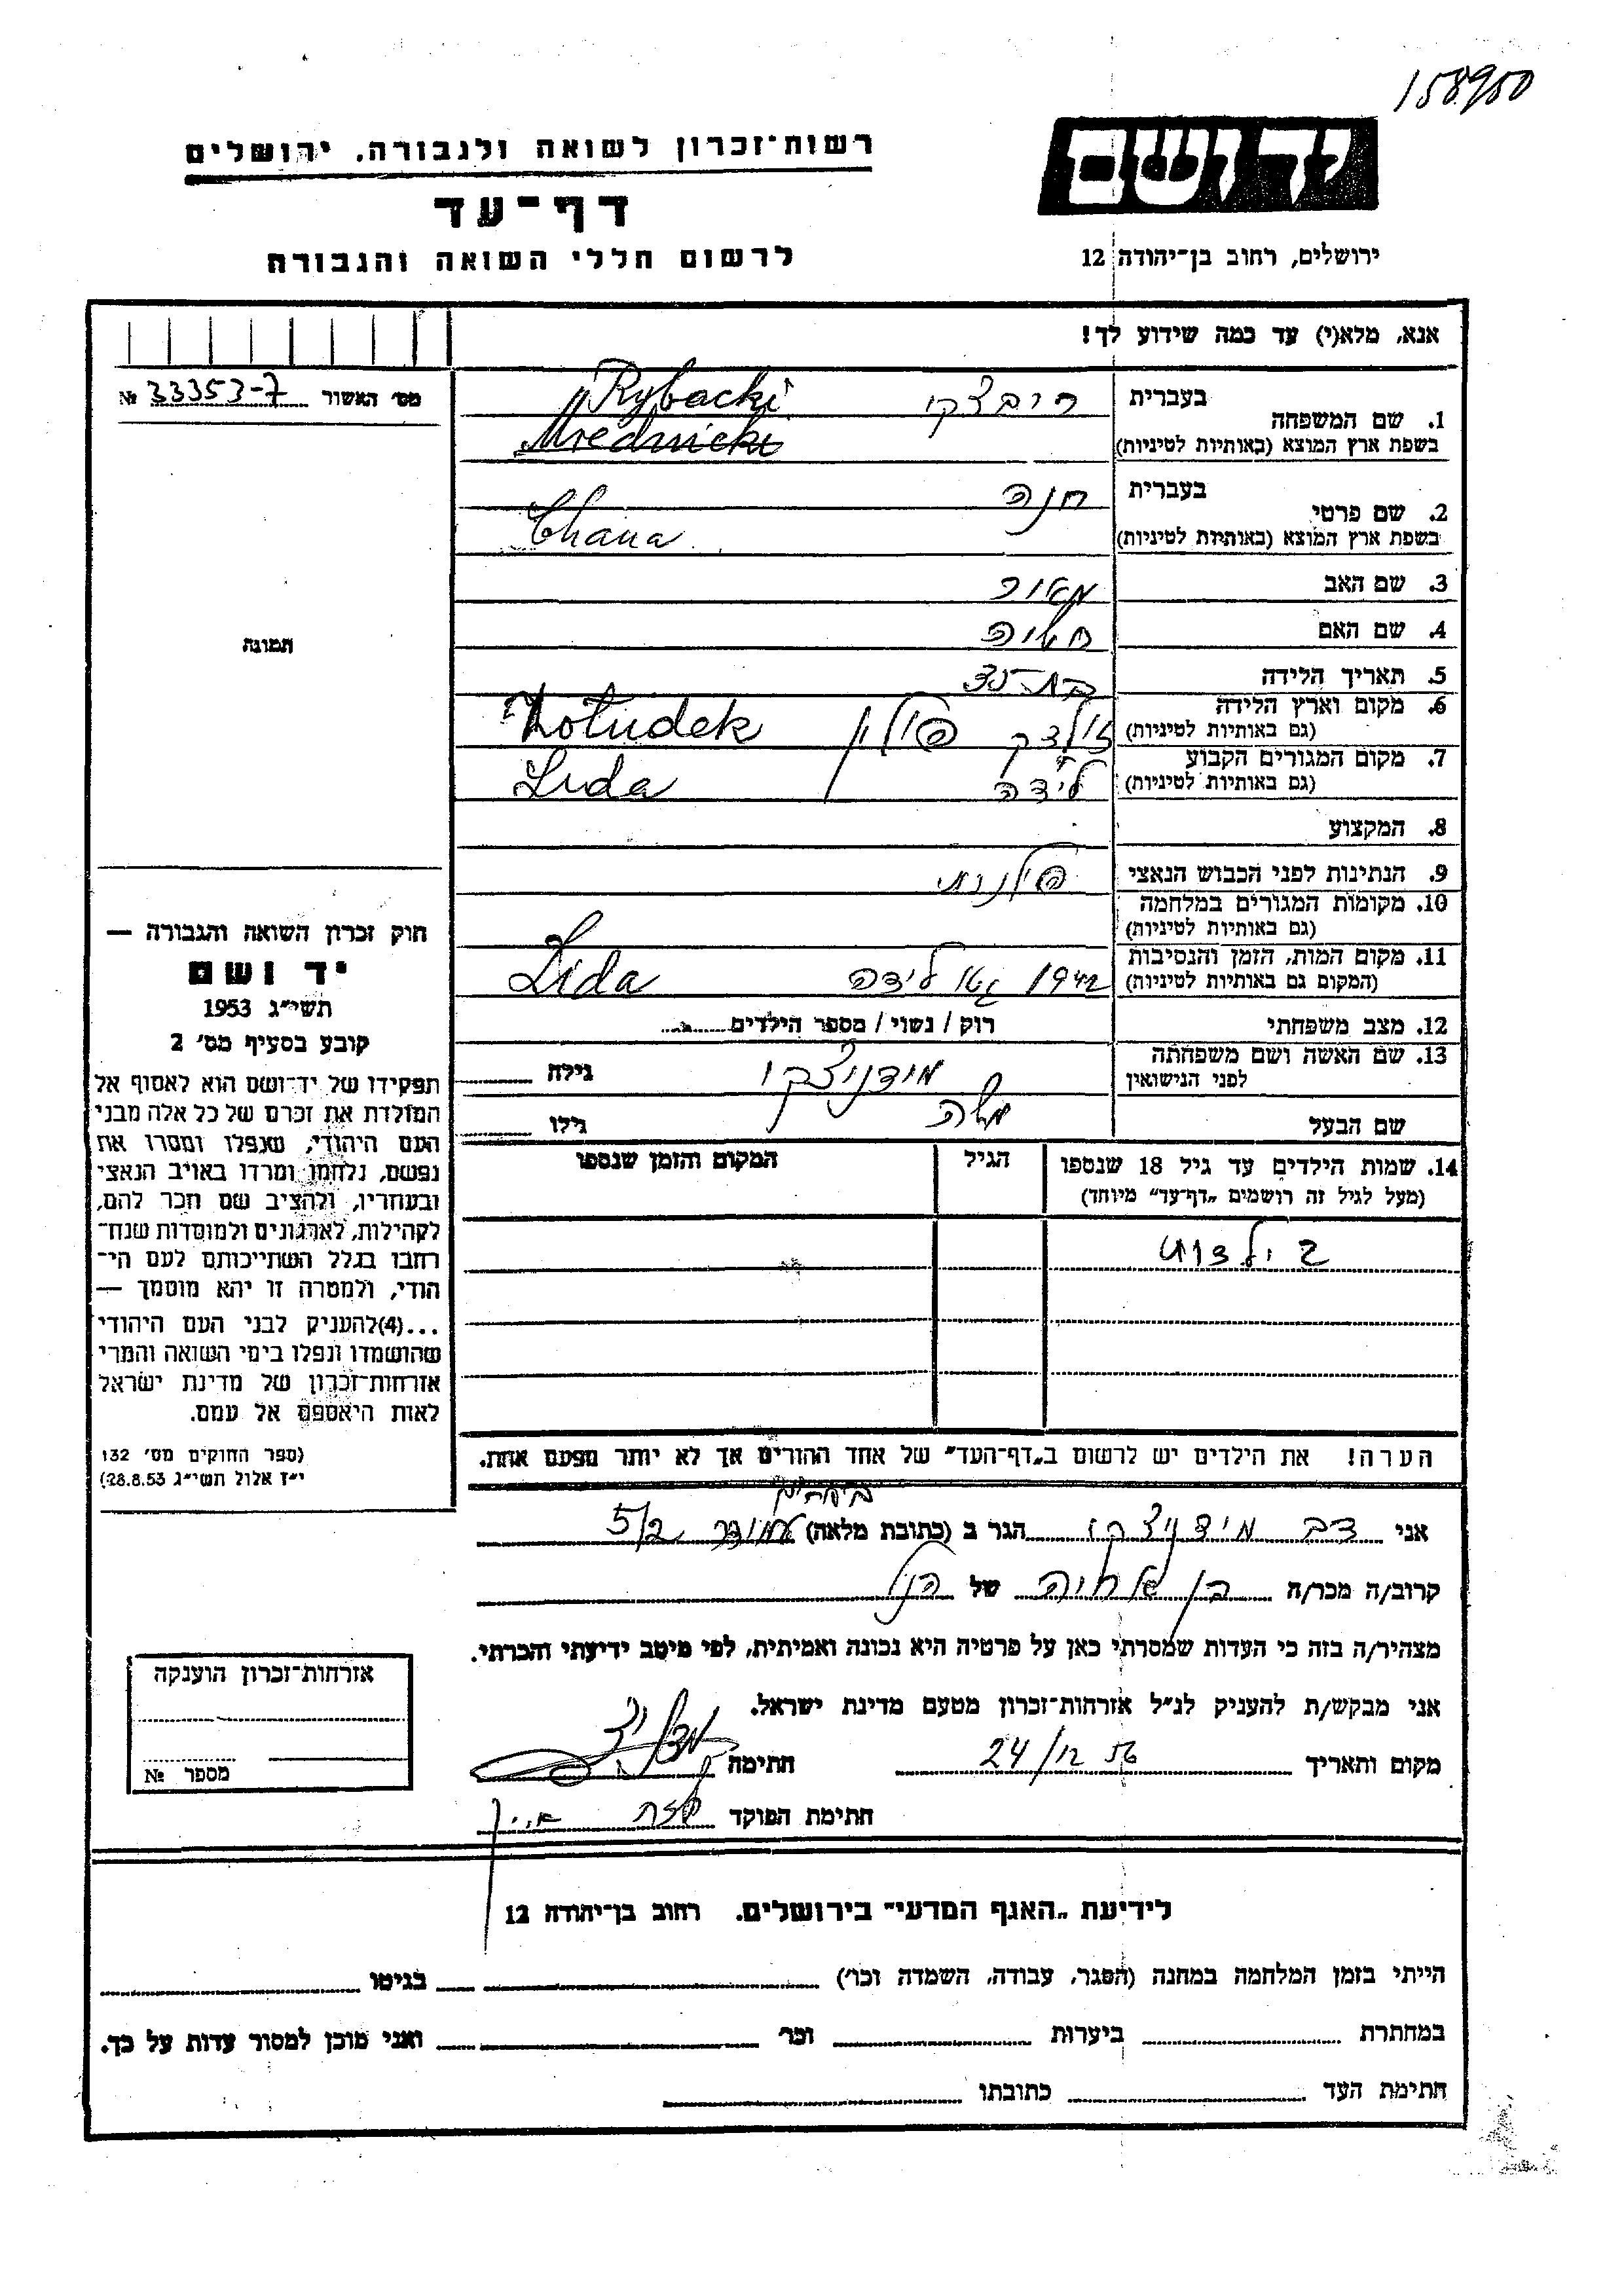 158950
יד ושם
רשות-זכרון לשואה ולגבורה, ירושלים
דף-עד
לרשום חללי השואה והגבורה
ירושלים, רחוב בן-יהודה 12
אנא, מלא(י) עד כמה שידוע לך!
מס' האשור 33353-7 №
1. שם המשפחה בעברית ריבצקי Rybacki
בשפת ארץ המוצא (באותיות לטיניות) Miednicki
2. שם פרטי בעברית חנה
בשפת ארץ המוצא (באותיות לטיניות) Chana
3. שם האב מאיר
4. שם האם חיה
5. תאריך הלידה
6. מקום וארץ הלידה
(גם באותיות לטיניות) פולין Żołudek
7. מקום המגורים הקבוע
(גם באותיות לטיניות) לידה Lida
8. המקצוע
9. הנתינות לפני הכבוש הנאצי פולנית
10. מקומות המגורים במלחמה
(גם באותיות לטיניות)
11. מקום המות, הזמן והנסיבות
(המקום גם באותיות לטיניות) 1942 גטו לידה Lida
12. מצב משפחתי רוק / נשוי / מספר הילדים
13. שם האשה ושם משפחתה
לפני הנישואין מידניצקי גילה
שם הבעל משה גילו
14. שמות הילדים עד גיל 18 שנספו הגיל המקום והזמן שנספו
(מעל לגיל זה רושמים „דף-עד" מיוחד)
2 ילדים
הערה! את הילדים יש לרשום ב„דף-העד" של אחד ההורים אך לא יותר מפעם אחת.
תמונה
חוק זכרון השואה והגבורה —
יד ושם
תשי"ג 1953
קובע בסעיף מס' 2
תפקידו של יד-ושם הוא לאסוף אל
המולדת את זכרם של כל אלה מבני
העם היהודי, שנפלו ומסרו את
נפשם, נלחמו ומרדו באויב הנאצי
ובעוזריו, ולהציב שם וזכר להם,
לקהילות, לארגונים ולמוסדות שנח-
רבו בגלל השתייכותם לעם הי-
הודי, ולמטרה זו יהא מוסמך —
...(4) להעניק לבני העם היהודי
שהושמדו ונפלו בימי השואה והמרי
אזרחות-זכרון של מדינת ישראל
לאות היאספם אל עמם.
(ספר החוקים מס' 132
י"ז אלול תשי"ג 28.8.53)
אני דב מידניצקי הגר ב (כתובת מלאה) 5/2
קרוב/ה מכר/ה בן אחיה של הנ"ל
מצהיר/ה בזה כי העדות שמסרתי כאן על פרטיה היא נכונה ואמיתית, לפי מיטב ידיעתי והכרתי.
אני מבקש/ת להעניק לנ"ל אזרחות-זכרון מטעם מדינת ישראל.
מקום ותאריך 24/12 56 חתימה
חתימת הפוקד
אזרחות-זכרון הוענקה
מספר №
לידיעת „האגף המדעי" בירושלים. רחוב בן-יהודה 12
הייתי בזמן המלחמה במחנה (הסגר, עבודה, השמדה וכו') בגיטו
במחתרת ביערות וכו' ואני מוכן למסור עדות על כך.
חתימת העד כתובתו